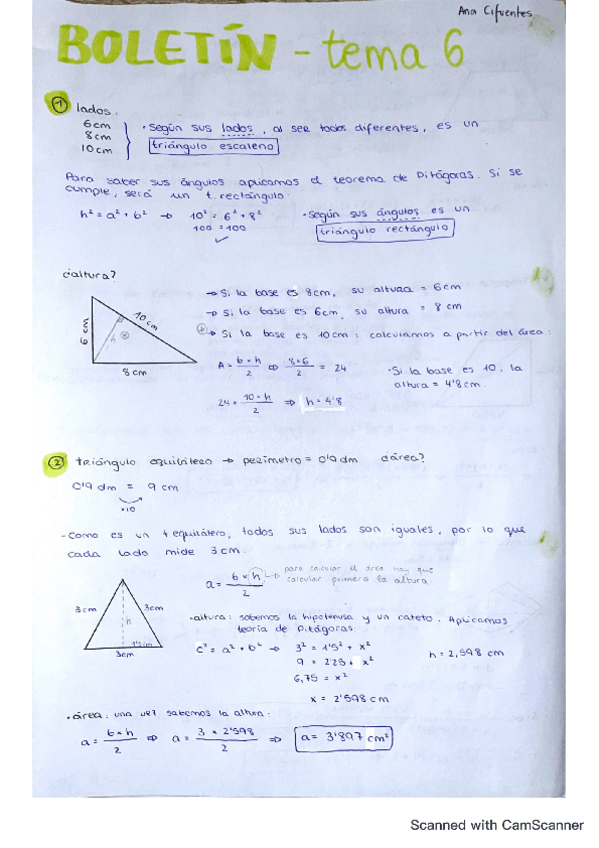 Ana Cifuentes
BOLETÍN - tema 6
① lados.
6 cm
8 cm
10 cm
· Según sus lados, al ser todos diferentes, es un
triángulo escaleno
Para saber sus ángulos aplicamos el teorema de Pitágoras. Si se
cumple, será un t. rectángulo.
h² = a² + b² → 10² = 6² + 8²
100 = 100
· Según sus ángulos es un
triángulo rectángulo
¿altura?
→ Si la base es 8cm, su altura = 6cm
→ Si la base es 6cm, su altura = 8 cm
→ Si la base es 10cm: calculamos a partir del área:
6 cm
10 cm
h
8 cm
A = b × h / 2 ⇨ 8×6 / 2 = 24
· Si la base es 10, la
altura = 4'8 cm
24 = 10 × h / 2 ⇒ h = 4'8
② triángulo equilátero → perímetro = 0'9 dm ¿área?
0'9 dm = 9 cm
×10
- Como es un t equilátero, todos sus lados son iguales, por lo que
cada lado mide 3 cm.
a = b × h / 2
para calcular el área hay que
calcular primero la altura.
3 cm
3cm
h
1'5cm
3cm
· altura: sabemos la hipotenusa y un cateto. Aplicamos
teoría de Pitágoras.
c² = a² + b² → 3² = 1'5² + x²
9 = 2'25 + x²
6,75 = x²
x = 2'598 cm
h = 2,598 cm
· área: una vez sabemos la altura:
a = b × h / 2 ⇨ a = 3 × 2'598 / 2 ⇒ a = 3'897 cm²
Scanned with CamScanner